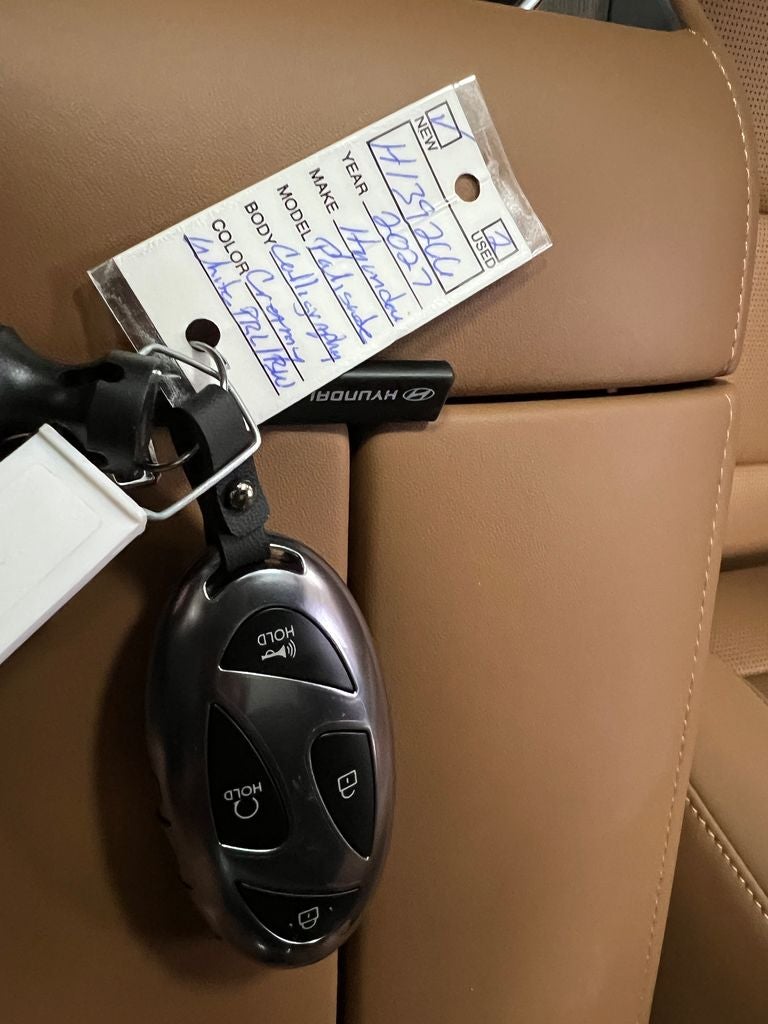 NEW ✓
USED 2
H139266
YEAR 2027
MAKE Hyundai
MODEL Palisade
BODY Calligraphy
COLOR Creamy
White PRL/
HYUNDAI
HOLD
HOLD